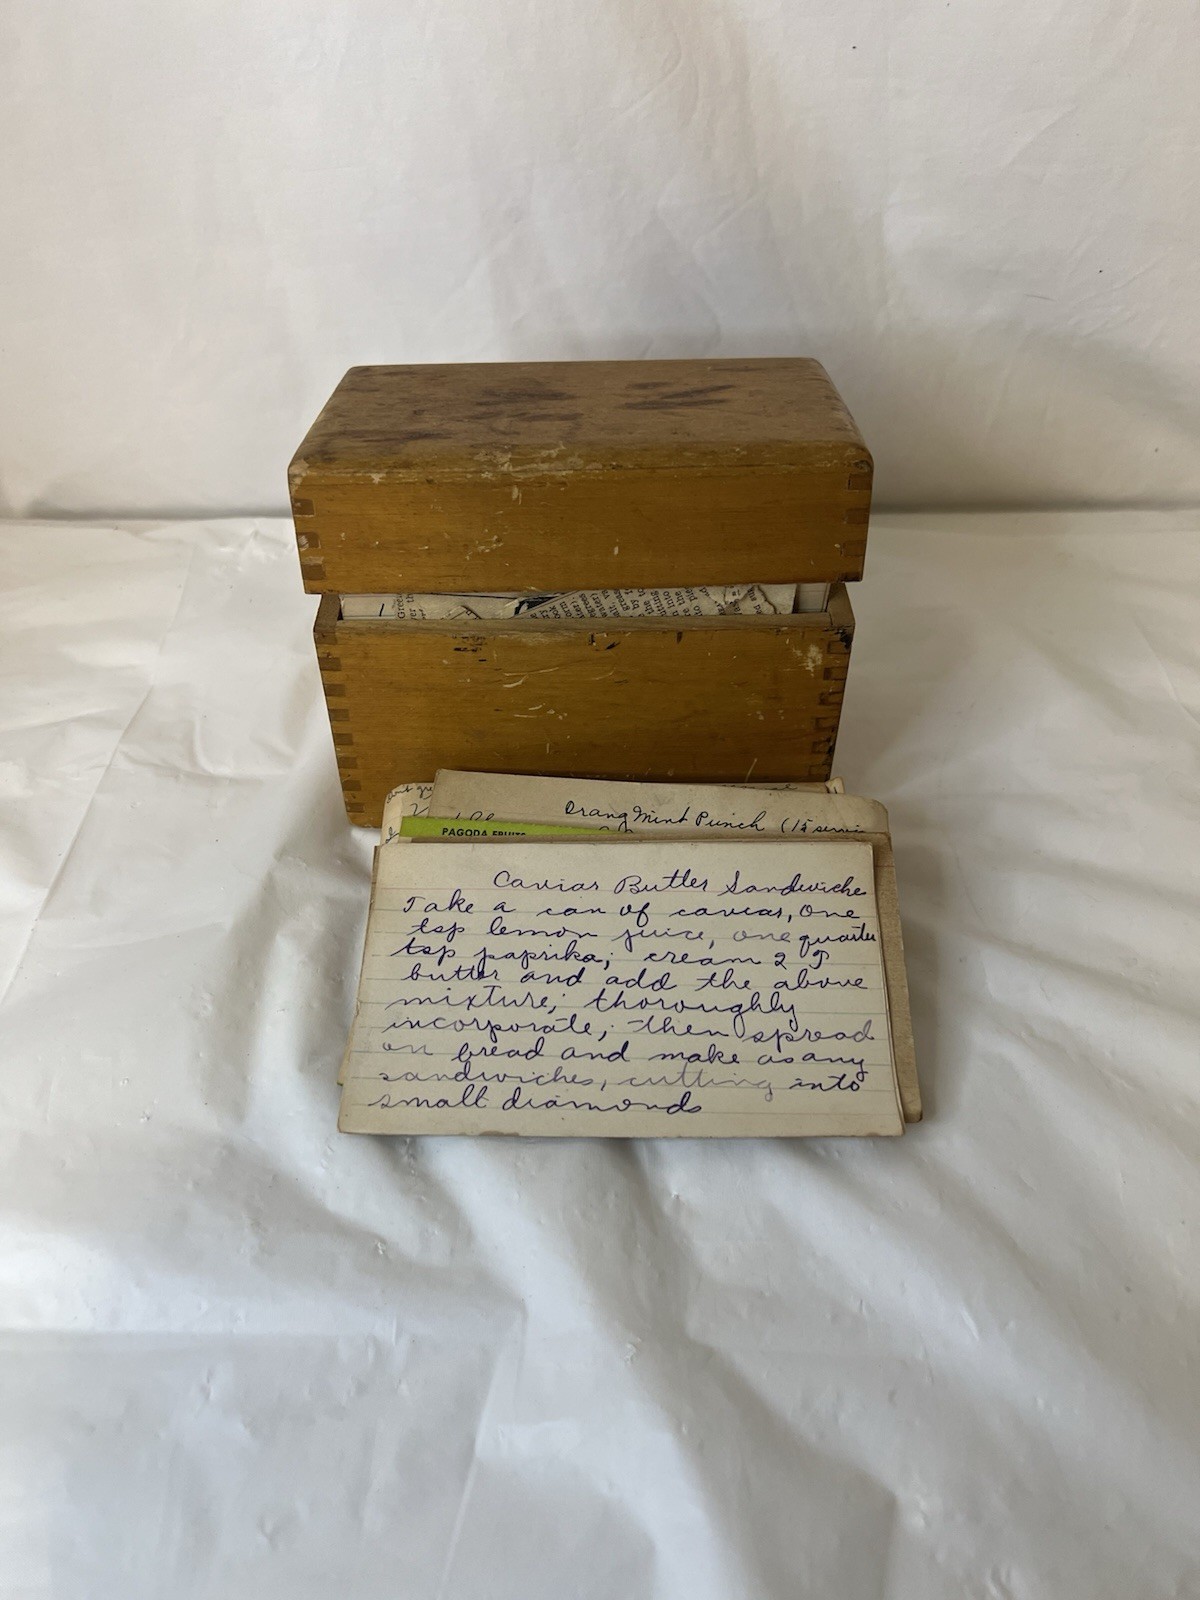 Orang Mint Punch (15 servin
PAGODA FRUITS
Caviar Butter Sandwiche
Take a can of caviar, one
tsp lemon juice, one quarter
tsp paprika; cream 2 T
butter and add the above
mixture; thoroughly
incorporate; then spread
on bread and make as any
sandwiches, cutting into
small diamonds